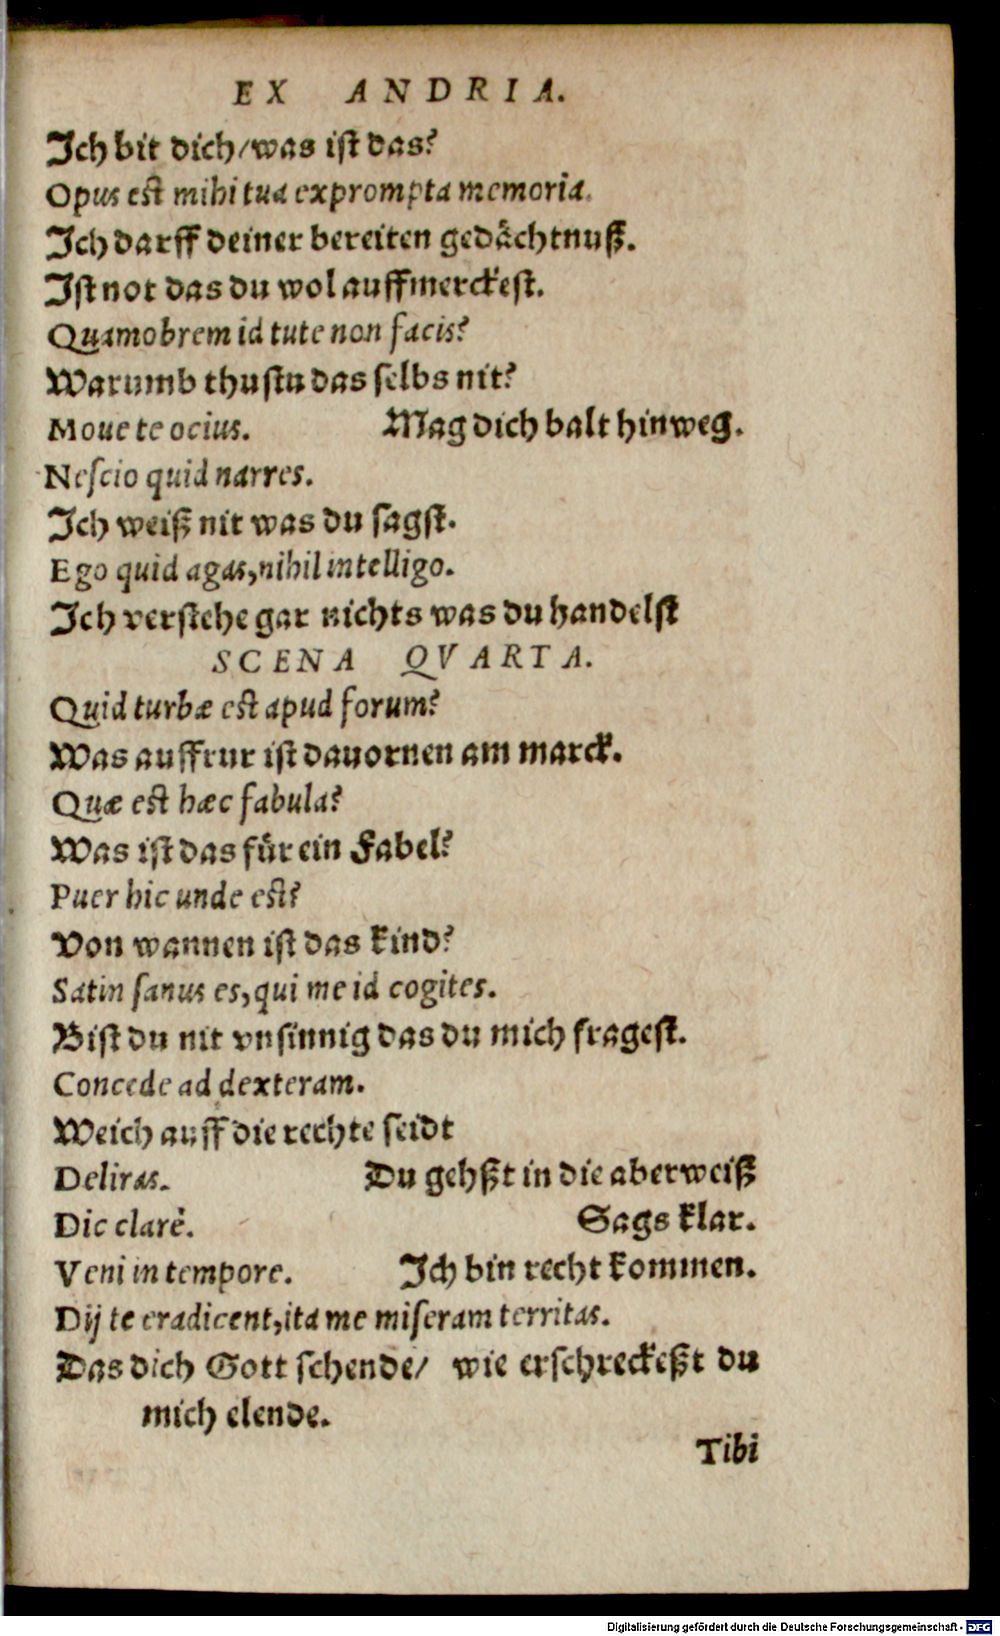 EX ANDRIA.
Ich bit dich/was ist das?
Opus est mihi tua exprompta memoria.
Ich darff deiner bereiten gedåchtnuß.
Ist not das du wol auffmerckest.
Quamobrem id tute non facis?
Warumb thustu das selbs nit?
Moue te ocius. Mag dich balt hinweg.
Nescio quid narres.
Ich weiß nit was du sagst.
Ego quid agas, nihil intelligo.
Ich verstehe gar nichts was du handelst
SCENA QVARTA.
Quid turbæ est apud forum?
Was auffrur ist dauornen am marck.
Quæ est hæc fabula?
Was ist das für ein Fabel?
Puer hic unde est?
Von wannen ist das kind?
Satin sanus es, qui me id cogites.
Bist du nit vnsinnig das du mich fragest.
Concede ad dexteram.
Weich auff die rechte seidt
Deliras. Du gehßt in die aberweiß
Dic clarè. Sags klar.
Veni in tempore. Ich bin recht kommen.
Dij te eradicent, ita me miseram territas.
Das dich Gott schende/ wie erschreckeßt du
mich elende.
Tibi
Digitalisierung gefördert durch die Deutsche Forschungsgemeinschaft - DFG